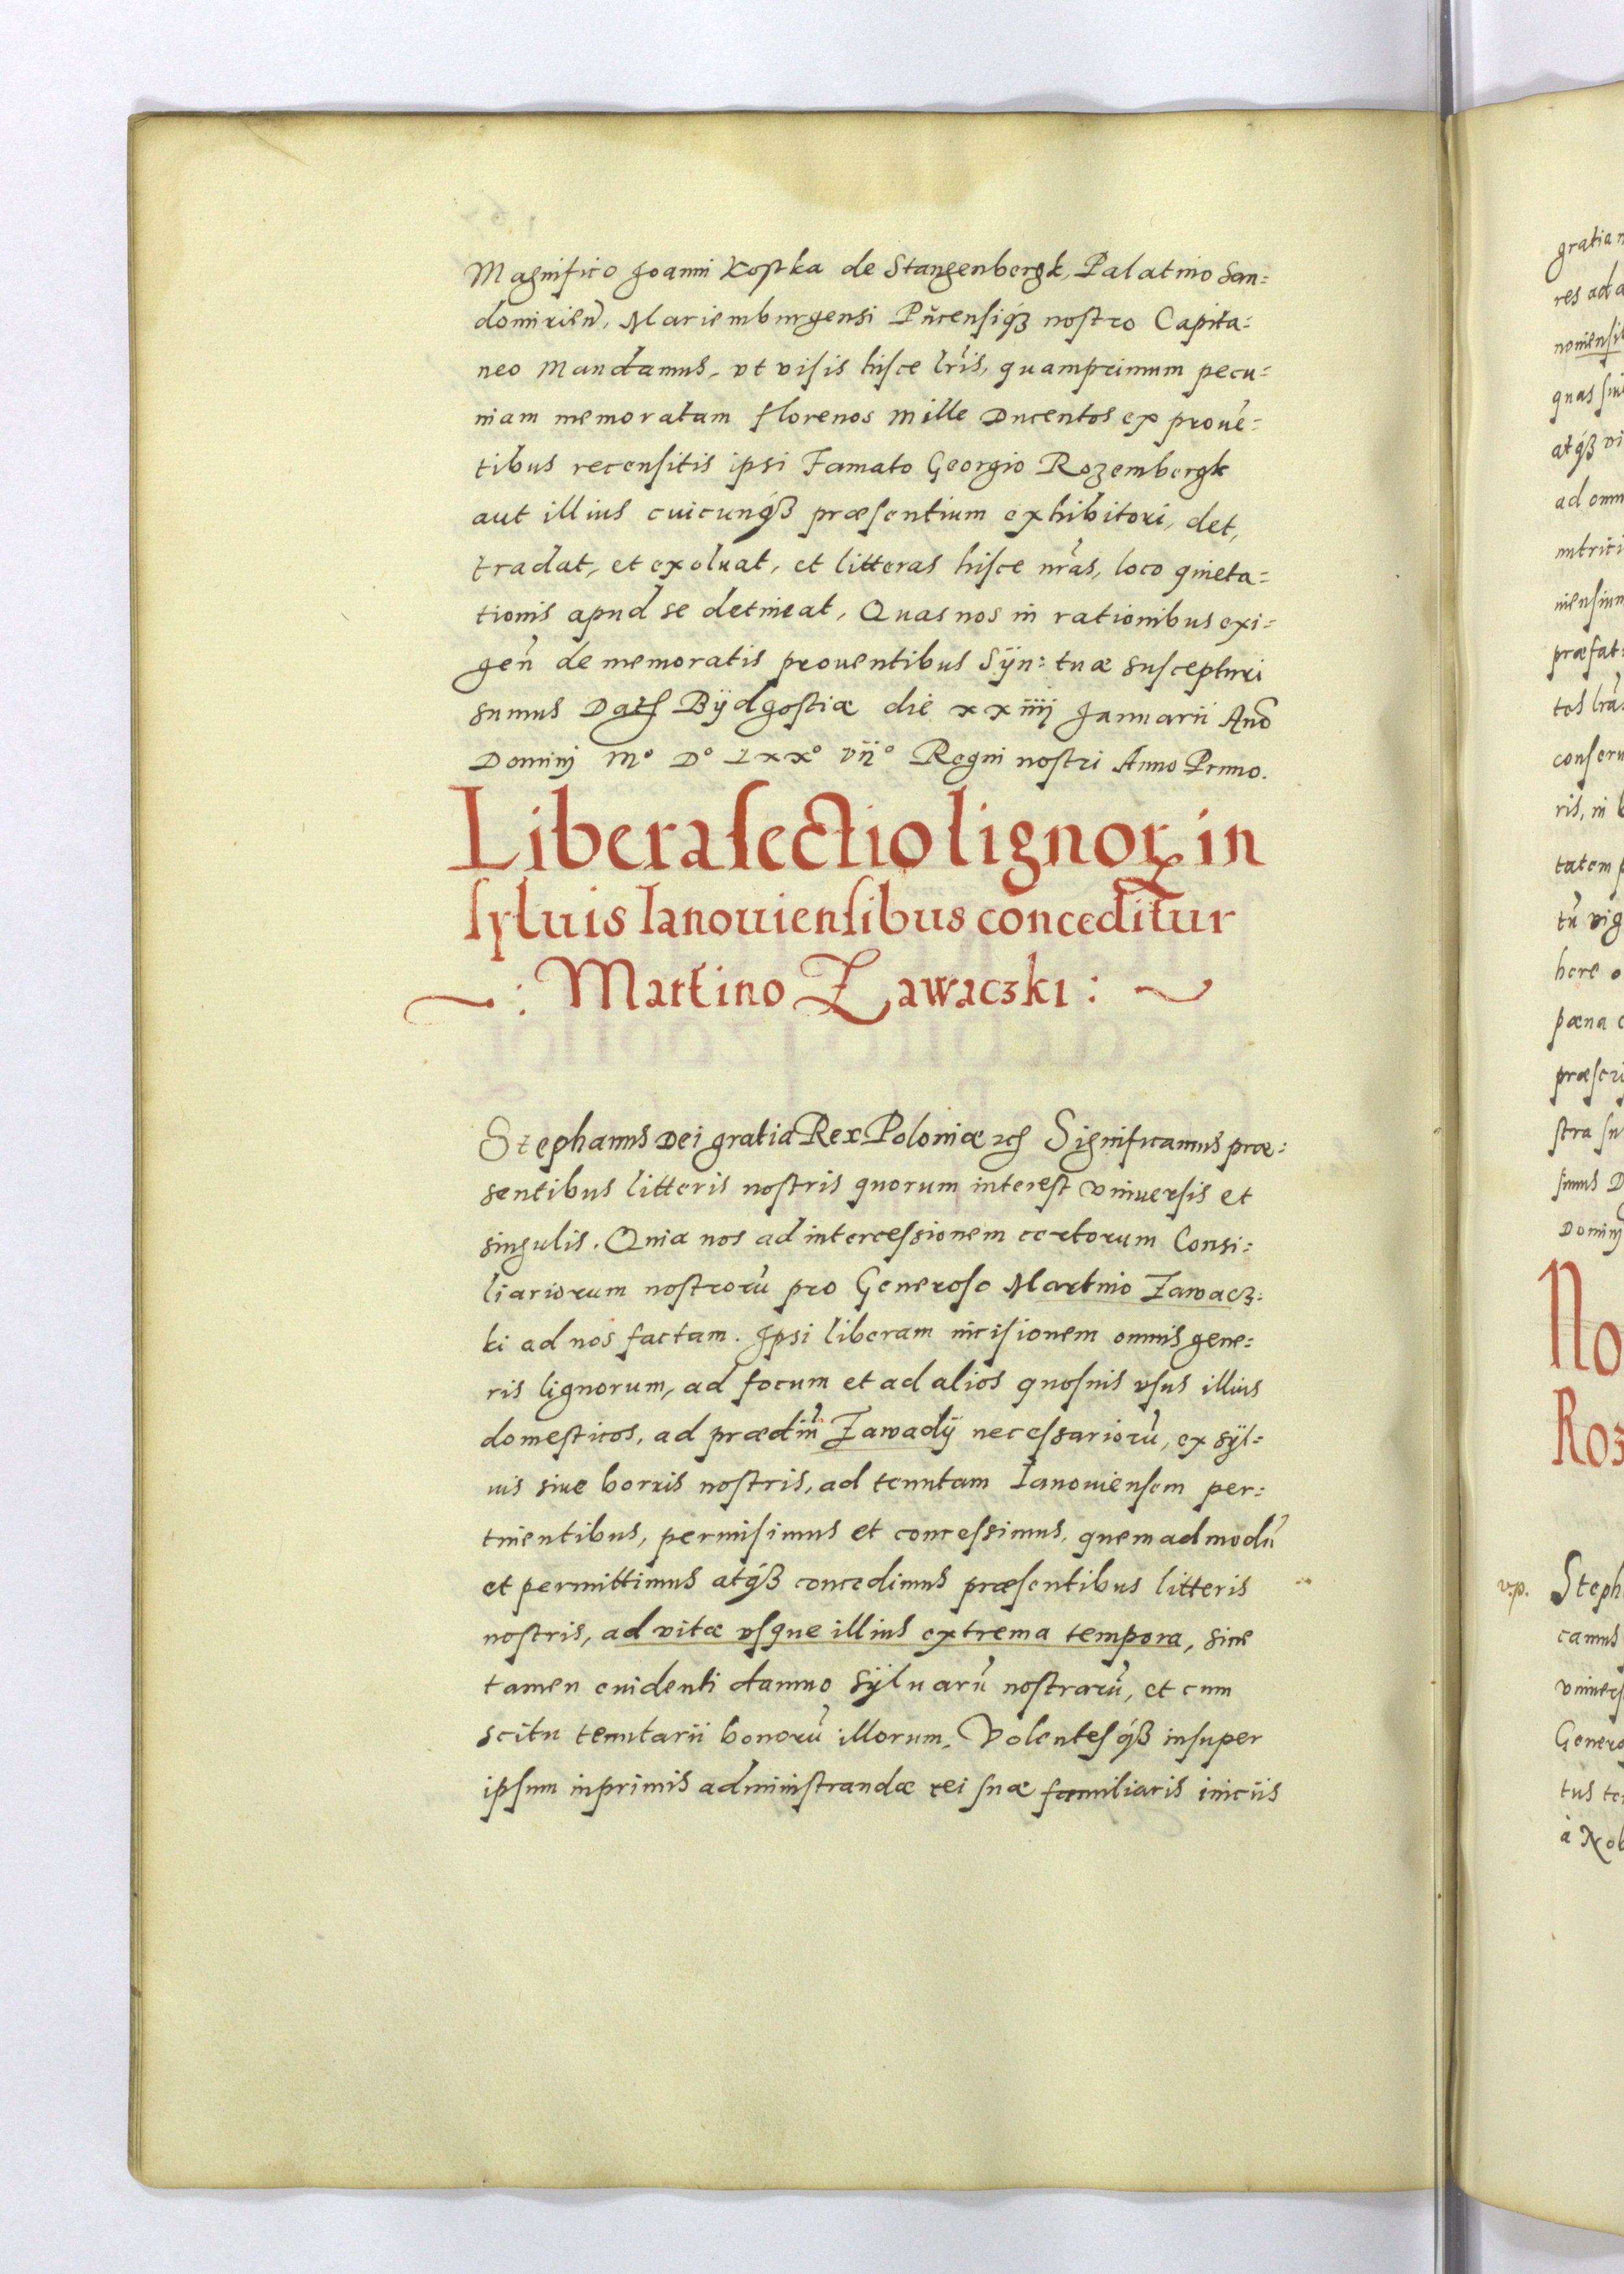 Magnifico Joanni Kostka de Stangenbergk, Palatino San=
domirien̄, Mariemburgensi Pūcensiqꝫ nostro Capita=
neo Mandamus, vt visis hisce lr̄is, quamprimum pecu=
niam memoratam florenos Mille Ducentos ex prouē=
tibus recensitis ipsi Famato Georgio Rozembergk
aut illius cuicunqꝫ præsentium exhibitori, det,
tradat, et exoluat, et litteras hisce nr̄as, loco quieta=
tionis apud se detineat, Quas nos in rationibus exi=
gen̄ de memoratis prouentibus Sÿn: tuæ suscepturi
sumus Datꝭ Bÿdgostiæ die xxiiij Januarii An̄o
Dominj Mᵒ Dᵒ Lxxᵒ vijᵒ Regni nostri Anno Primo.
Libera sectio lignoꝝ in
syluis Ianouiensibus conceditur
~ : Martino Zawaczki : ~
Stephanus Dei gratia Rex Poloniæ ꝛcꝭ Significamus præ=
sentibus litteris nostris quorum interest vniuersis et
singulis. Quia nos ad intercessionem certorum Consi=
liariorum nostrorū pro Generoso Martino Zawacz=
ki ad nos factam. Ipsi liberam incisionem omnis gene=
ris lignorum, ad focum et ad alios quosuis vsus illius
domesticos, ad prædiū Zawadÿ necessariorū, ex sÿl=
uis siue borris nostris, ad tenutam Ianouiensem per=
tinentibus, permisimus et concessimus, quemadmodū
et permittimus atqꝫ concedimus præsentibus litteris
nostris, ad vitæ vsque illius extrema tempora, sine
tamen euidenti damno Sÿluarū nostrarū, et cum
scitu tenutarii bonorū illorum, Volentesqꝫ insuper
ipsum inprimis administrandæ rei suæ familiaris iniciis
gratia
res ad
quas
præfat
tos lr̄as
ris, in
tatem
tū vig
here
pœna
stra
simus D
Dominj
No
Roz
v.p. Steph
camus
vniuers
Genero
tus
à Nob